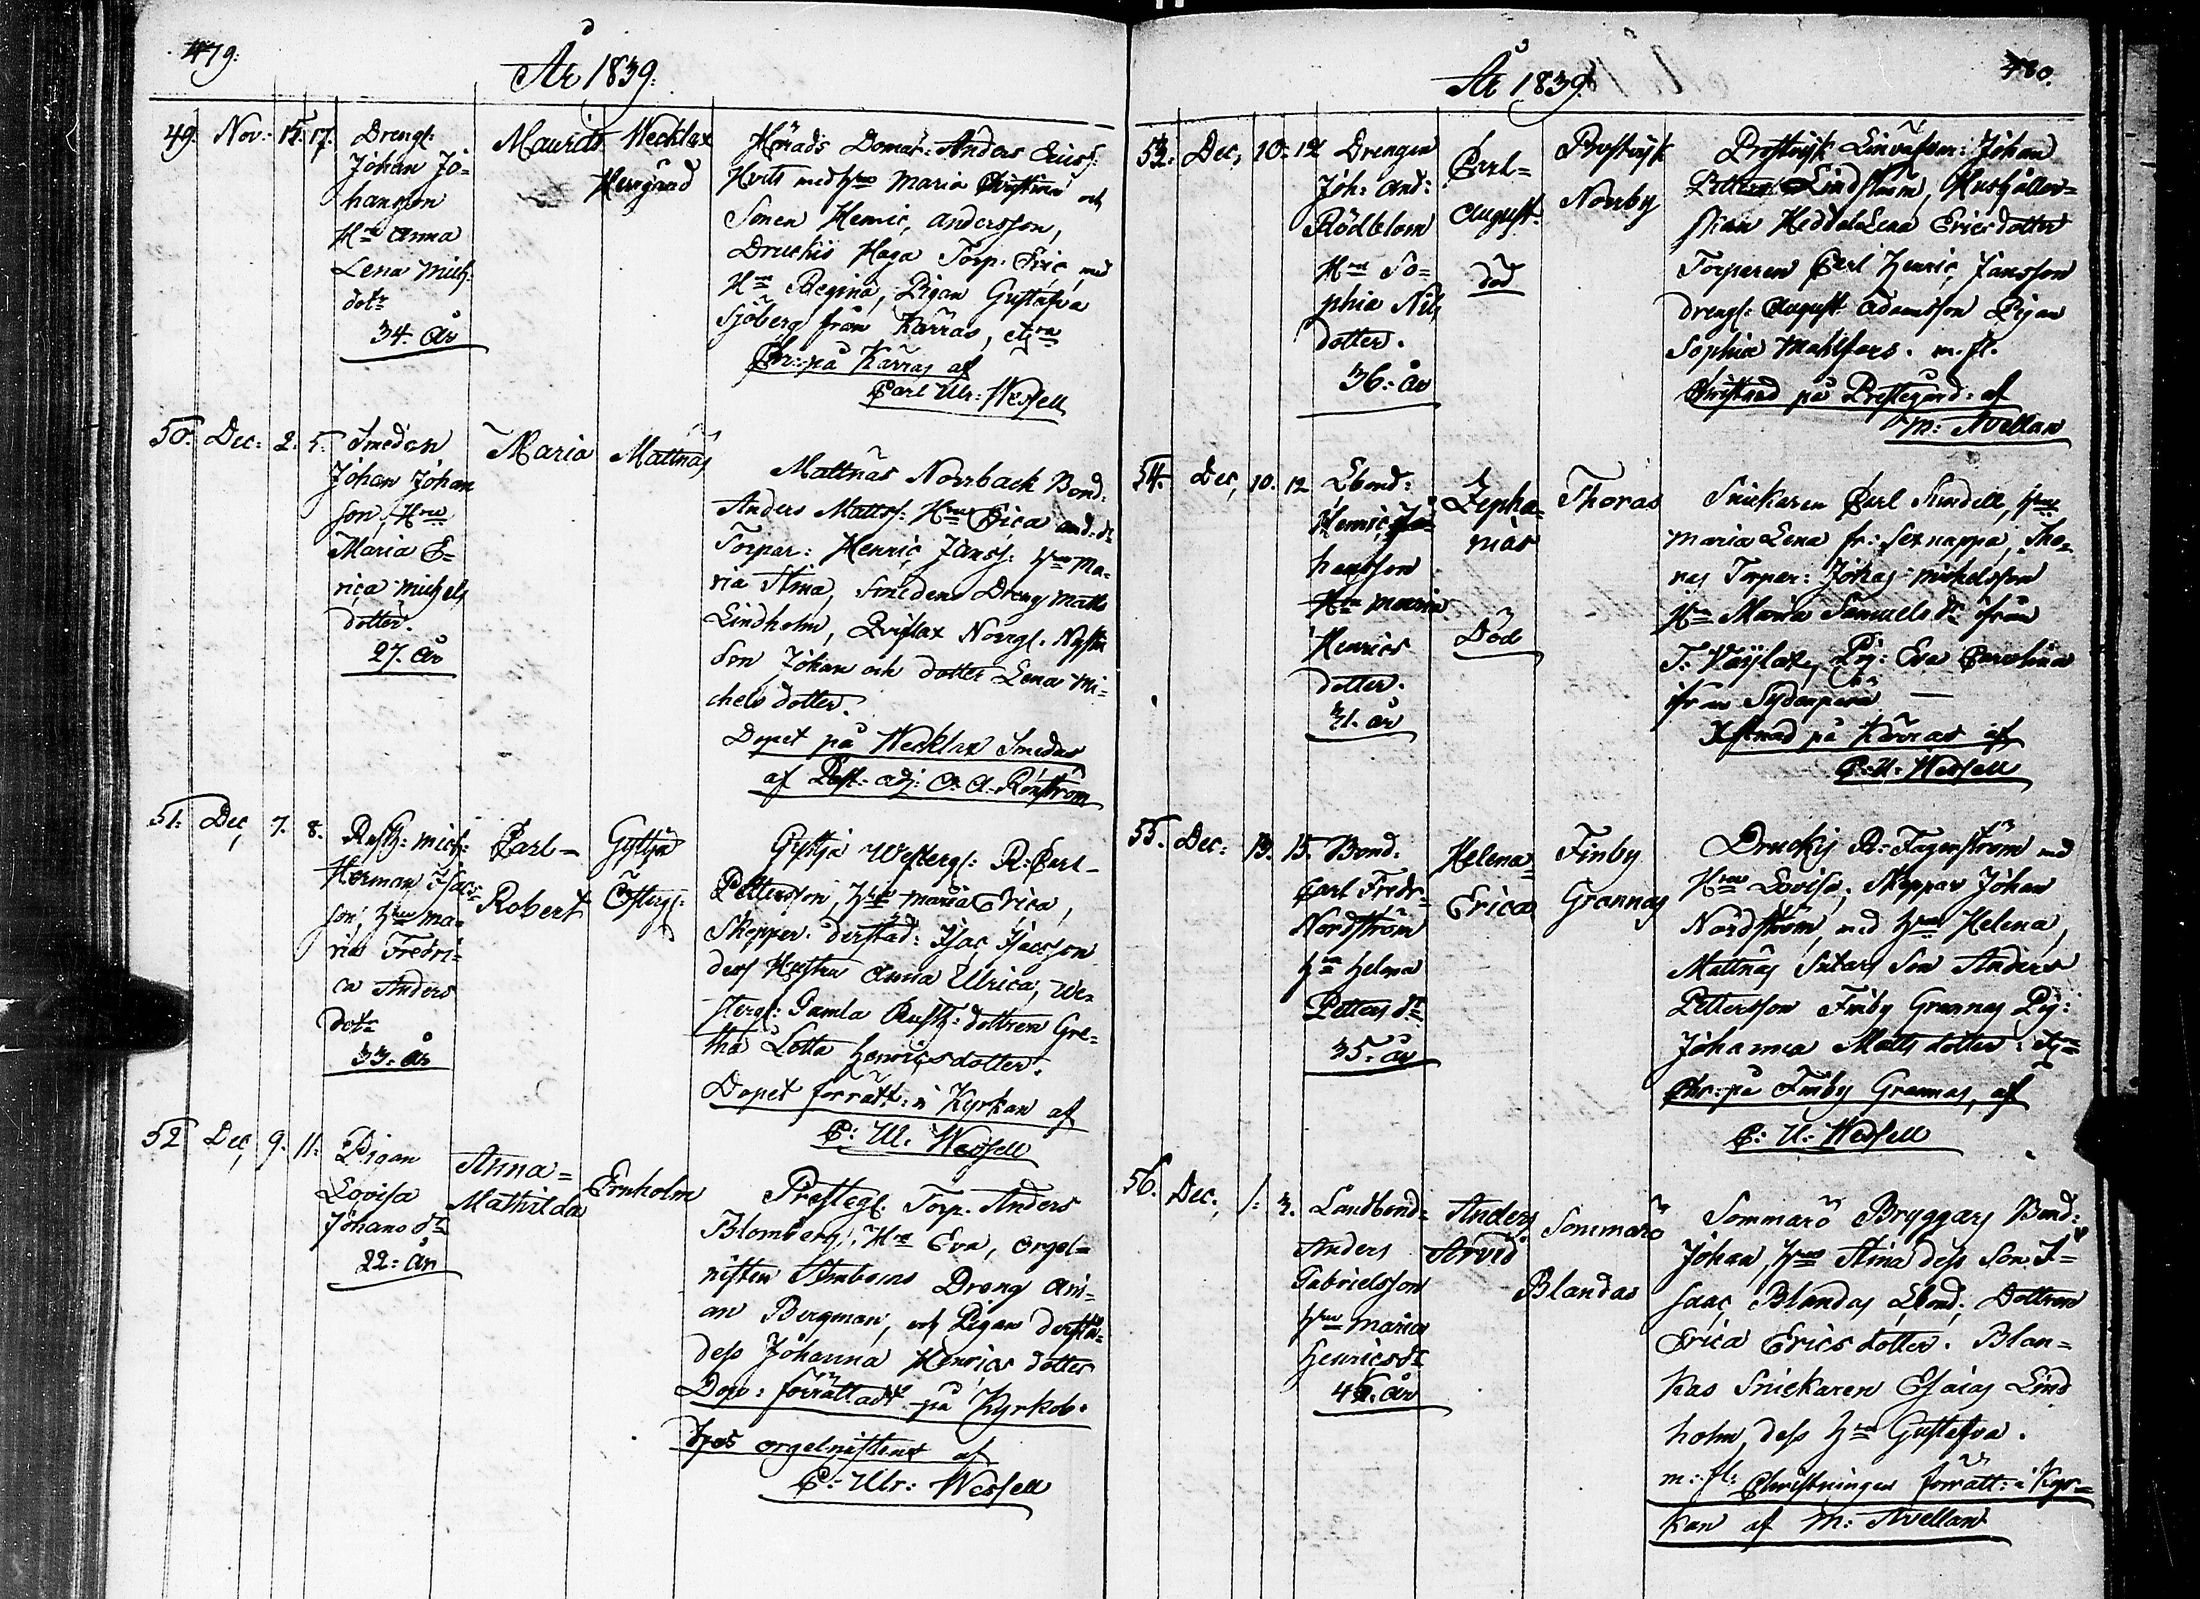 479.
År 1839.
49. Nov: 15. 17.
Drengl:
Johan Jo=
hansson
Hru Anna
Lena Mich:
dotr
34. År
Maurits
Wecklax
Herrgård
Härads Domar: Anders Ericss:
Hvits med Hru Maria Christina och
Sonen Henric, Andersson,
Druckis Haga Torp. Eric, med
Hru Regina, Pigan Gustafva
Sjöberg från Kärras,
Chr: på Kärras af
Carl Ulr: Wessell
50. Dec: 2. 5.
Smeden
Johan Johan
son, Hru
Maria E=
rica Michels
dotter.
27. År
Maria
Mattnäs
Mattnäs Norrback Bond:
Anders Matts: Hru Erica And:dr
Torpar: Henric Janss: Hru Ma=
ria Stina, Smedens Dreng Matts
Lindholm, Qviflax Norrgl.
Son Johan och dotter Lena Mi=
chelsdotter.
Dopet på Wecklax Smedas
af Past: adj: O. A. Renström
51. Dec, 7. 8.
Rusth: Mich:
Herman Isacs=
son, Hru Ma=
ria Fredri=
ca Anders
dotr
33. År
Carl=
Robert
Gyttja
Österg:
Gyttja Westergl: R: Carl=
Pettersson, Hru Maria Erica,
Skeppar. derstäd: Isac Isacsson
dess Hustru Anna Ulrica, We=
stergl: Gamla Rusth: dottren Gre=
tha Lotta Henricsdotter.
Dopet förrätt: i Kyrkan af
C: U. Wessell
52 Dec, 9. 11.
Pigan
Lovisa
Johansdr
22. År
Anna=
Mathilda
Ernholm
Prestegl. Torp. Anders
Blomberg, Hru Eva, Orgel=
nisten Dreng Ari=
an Bergman, och Pigan derstä=
dess Johanna Henrics dotter
Dop: förrättadt på Kyrkob:
hos orgelnisten af
C: Ulr: Wessell
480.
År 1839.
53. Dec, 10. 12
Drengen
Joh: And:
Rödblom
Hru So=
phia Nils
dotter.
36. År
Carl=
August.
död
Prostvik
Norrby
Prostvik Johan
Lindström, Hushåller=
skan Hedda Lena Ericsdotter
Torparen Carl Henric Jansson
drengl: August Adamsson Pigan
Sophia Mahlfors. m. fl.
Christnad på Prestegård: af
M: Avellan
54. Dec, 10. 12
Lbond:
Henric Jo=
hansson
Hru Maria
Henrics
dotter.
31. År
Zepha=
nias
Död
Thoras
Snickaren Carl Sundell, Hru
Maria Lena fr: Sexnappa, Tho=
ras Torpar: Johas Mickelsson
Hru Maria Samuelsdr från
T: Väylax, Pig: Eva Carolina
ifrån Sydänperä
Xstnad på Kärras af
C. U. Wessell
55. Dec: 13. 15.
Bond.
Carl Fredr:
Nordström
Hru Helena
Pettersdr
35. År
Helena=
Erica
Finby
Grannas
Druckis R: Fagerström med
Hru Lovisa, Skeppar Johan
Nordström, med Hru Helena,
Mattnäs Sutars Son Anders
Pettersson Finby Grannas Pig:
Johanna Mattsdotter:
Chr: på Finby Grannas, af
C: U: Wessell
56. Dec. 1. 3.
Landbond=
Anders
Gabrielsson
Hru Maria
Henricsdr
År
Anders
Arvid
Sommarö
Blandas
Sommarö Bryggars Bond:
Johan, Hru Stina dess Son I=
saac, Blandas Lbond: Dottren
Erica Ericsdotter. Blan=
kas Snickaren Esaias Lind
holm, dess Hru Gustafva.
m: fl: Christningen förrätt: i Kyr=
kan af M: Avellan